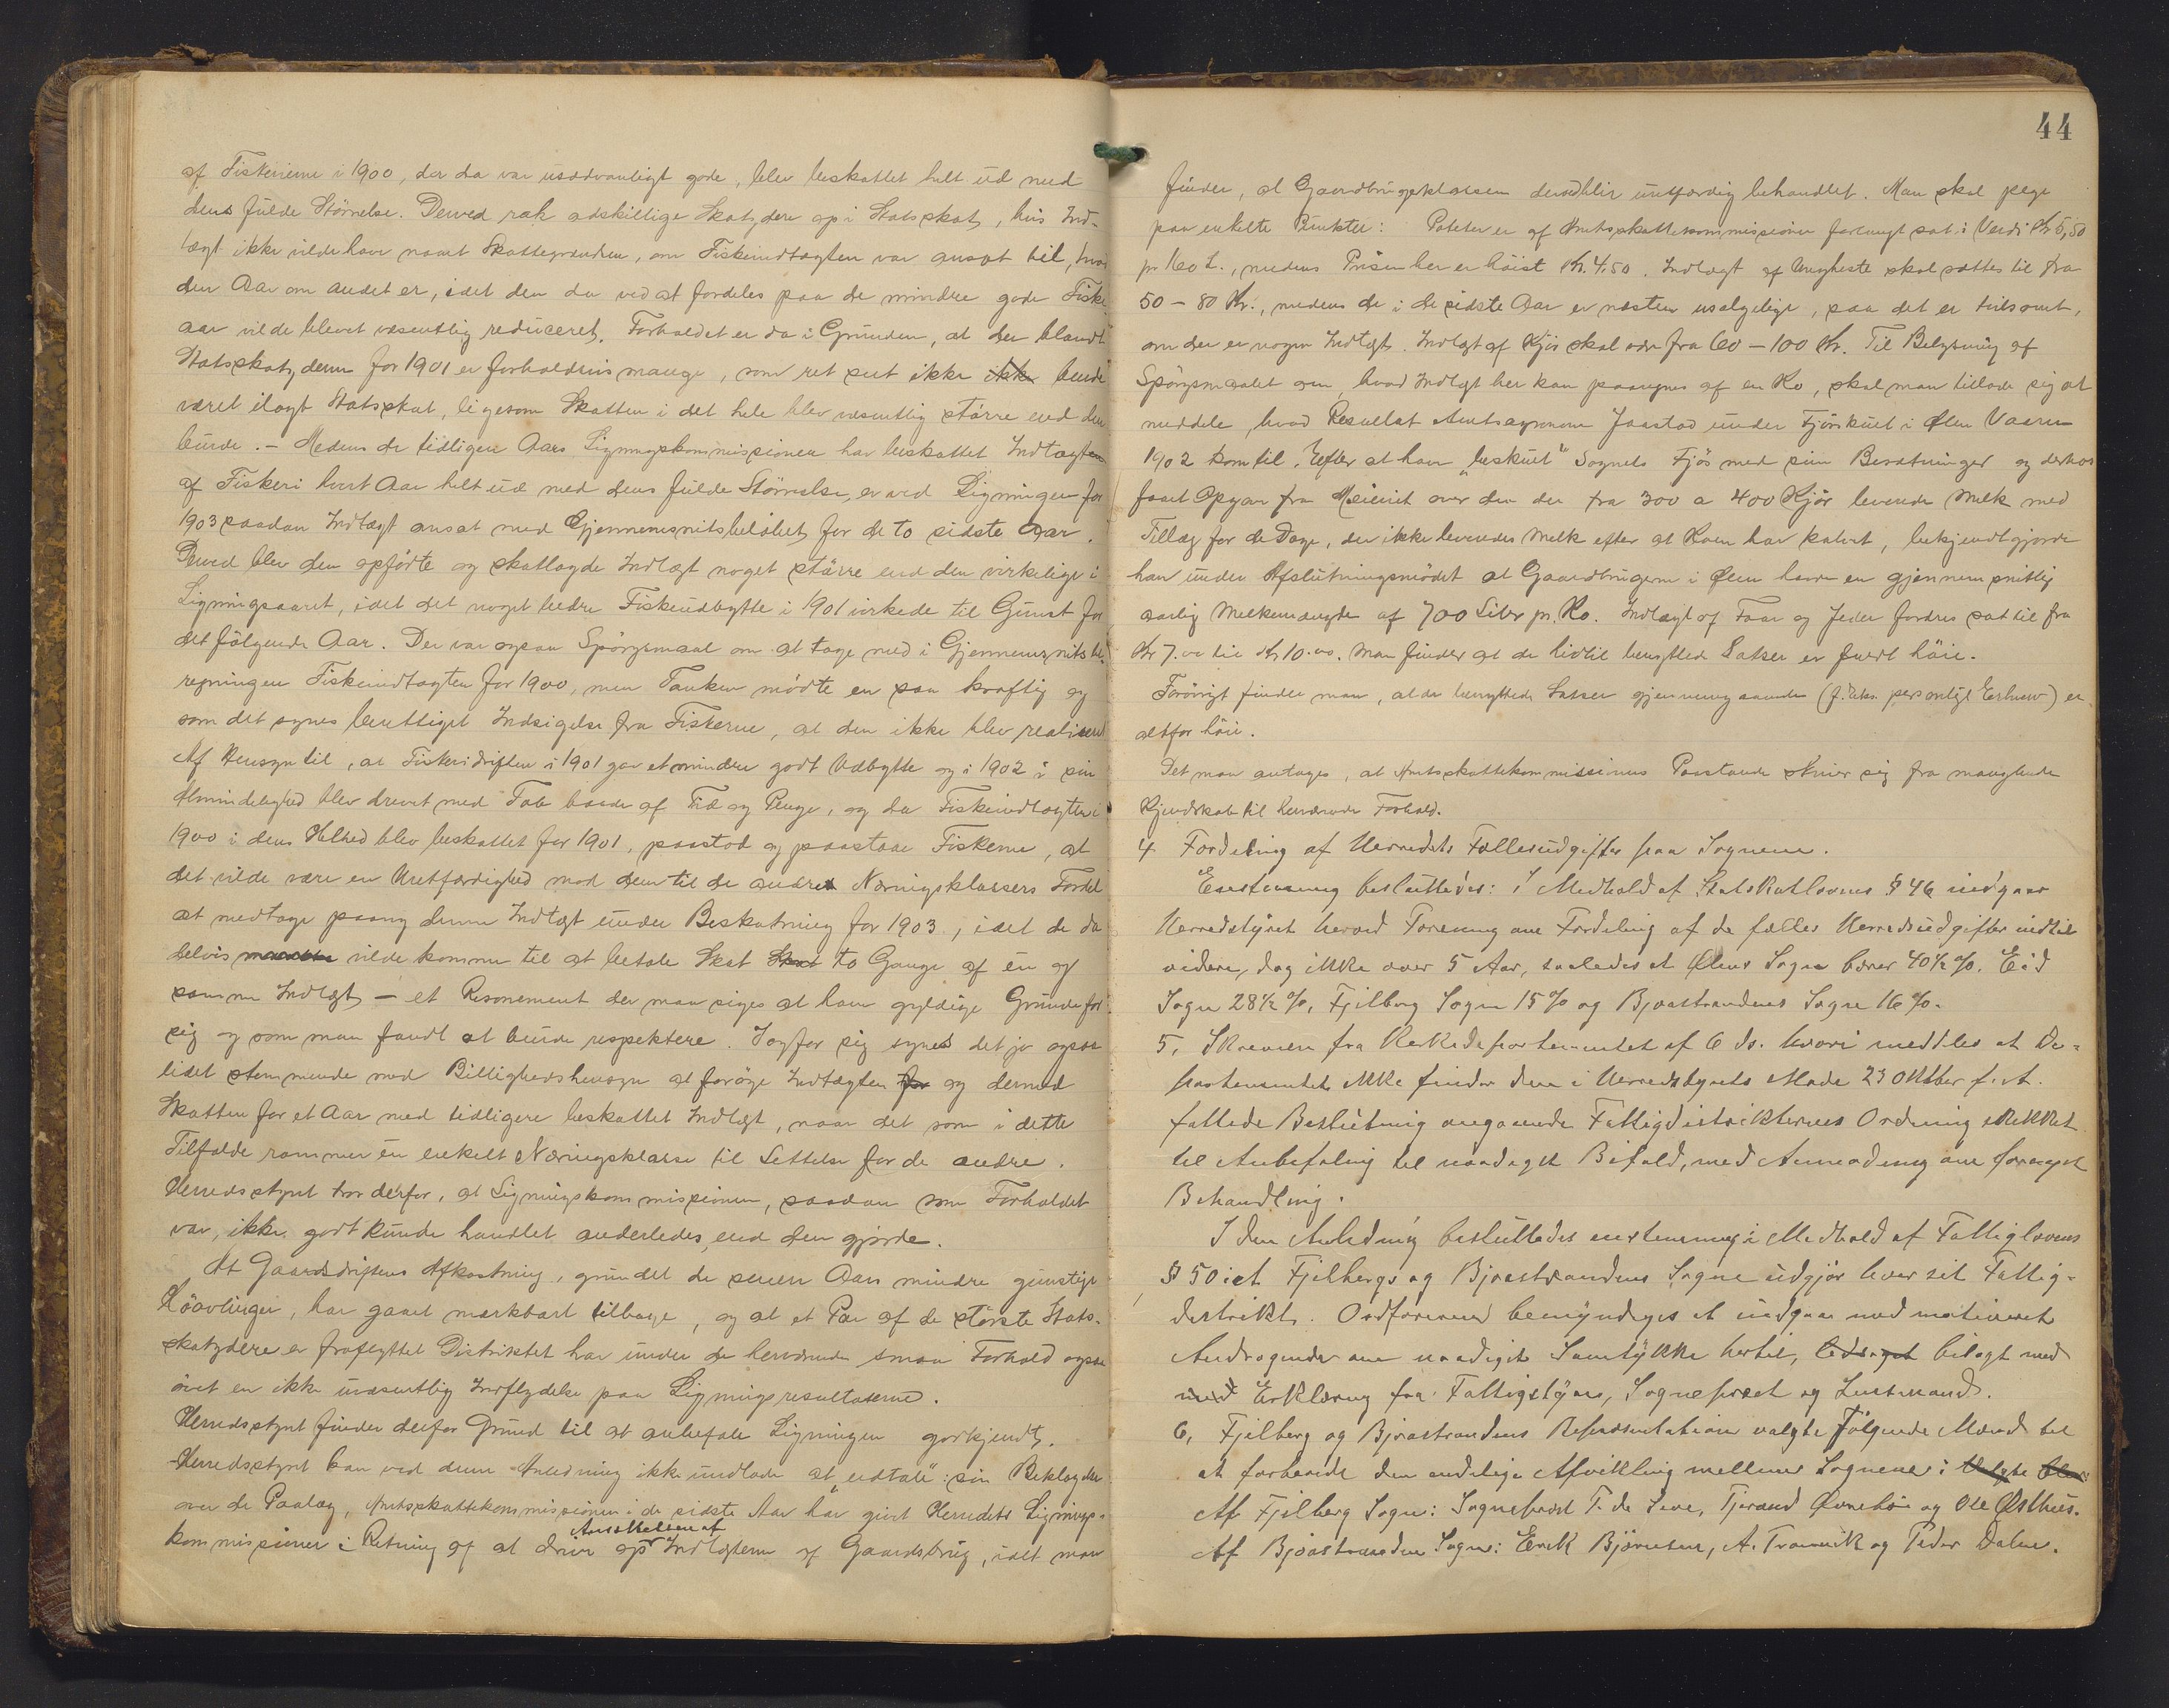 af Fiskerierne i 1900, der da var usædvanligt gode, blev beskattet helt ud med
dens fulde Størrelse. Derved rak adskillige Skatydere op i Statsskat, hvis Ind-
tægt ikke vilde have naaet Skattegrændsen, om Fiskeindtægten var ansat til, hvad
den Aar om andet er, idet den da ved at fordeles paa de mindre gode Fiske-
aar vilde blevet væsentlig reduceret. Forholdet er da i Grunden, at der blandt
Statsskatyderne for 1901 er forholdsvis mange, som ret seet ikke ikke burde
været ilagt Statsskat, ligesom Skatten i det hele blev væsentlig større end den
burde. – Medens de tidligere Aars Ligningskommissioner har beskattet Indtægten
af Fiskeri hvert Aar helt ud med dens fulde Størrelse, er ved Ligningen for
1903 saadan Indtægt ansat med Gjennemsnitsbeløbet for de to sidste Aar.
Derved blev den opførte og skatlagde Indtægt noget større end den virkelige i
Ligningsaaret, idet det noget bedre Fiskeudbytte i 1901 virkede til Gunst for
det følgende Aar. Der var ogsaa Spørgsmaal om at tage med i Gjennemsnitsbe-
regningen Fiskeindtægten for 1900, men Tanken mødte en saa kraftig og
som det synes berettiget Indsigelse fra Fiskerne, at den ikke blev realiseret
Af Hensyn til, at Fiskeridriften i 1901 gav et mindre godt Udbytte og i 1902 i sin
Almindelighed blev drevet med Tab baade af Tid og Penge, og da Fiskeindtægten i
1900 i dens Helhed blev beskattet for 1901, paastod og paastaar Fiskerne, at
det vilde være en Uretfærdighed mod dem til de andres Næringsklassers Fordel
at medtage paany denne Indtægt under Beskatning for 1903, idet de da
delvis vilde komme til at betale Skat to Gange af én og
samme Indtægt – et Resonement der maa siges at have gyldige Grunde for
sig og som man fandt at burde respektere. I og for sig synes det jo ogsaa
lidet stemmende med Billighedshensyn at forøge Indtægten for og dermed
Skatten for et Aar med tidligere beskattet Indtægt, naar det som i dette
Tilfælde rammer én enkelt Næringsklasse til Lettelse for de andre.
Herredsstyret tror derfor, at Ligningskommissionen, saadan som Forholdet
var, ikke godt kunde handlet anderledes, end den gjorde.
At Gaardsdriftens Afkastning, grundet de senere Aars mindre gunstige
har gaaet mærkbart tilbage, og at et Par af de største Stats-
skatydere er fraflyttet Distriktet har under de herværende smaa Forhold ogsaa
øvet en ikke uvæsentlig Indflydelse paa Ligningsresultaterne.
Herredsstyret finder derfor Grund til at anbefale Ligningen godkjendt.
Herredsstyret kan ved denne Anledning ikke undlade at "udtale" sin Beklagelse
over de Paalæg, Amtsskattekommissionen i de sidste Aar har givet Herredets Lignings-
kommissioner i Retning af at drive op Ansættelsen af Indtægterne af Gaardsbrug, idet man
44
finder, at Gaardbrugsklassen derved blir uretfærdig behandlet. Man skal pege
paa enkelte Punkter: Poteter er af Amtsskattekommissionen forlangt sat i Verdi Kr 5,50
pr 160 L., medens Prisen her er høist Kr. 4.50. Indtægt af Ungheste skal sættes til fra
50 – 80 Kr., medens de i de sidste Aar er næsten usælgelige, saa det er tvilsomt,
om der er nogen Indtægt. Indtægt af Kjør skal være fra 60 – 100 Kr. Til Belysning af
Spørgsmaalet om, hvad Indtægt her kan paaregnes af en Ko, skal man tillade sig at
meddele, hvad Resultat Amtsagronom Jaastad under Fjøskuet i Ølen Vaaren
1902 kom til. Efter at have "beskuet" Sognets Fjøs med sine Besætninger og derhos
faaet Opgave fra Meieriet over den der fra 300 a 400 Kjør leverede Melk med
Tillæg for de Dage, der ikke leveredes Melk efter at Koen har kalvet, bekjendtgjorde
han under Afslutningsmødet at Gaardbrugerne i Ølen havde en gjennemsnitlig
aarlig Melkemængde af 700 Liter pr. Ko. Indtægt af Faar og Jeder fordres sat til fra
Kr 7.00 til Kr 10.00. Man finder at de hidtil benyttede Satser er fuldt høie.
Forøvrigt finder man, at de benyttede Satser gjennemgaaende (f. Eks. personligt Erhverv) er
altfor høie.
Det maa antages, at Amtsskattekommissionens Paastande skriver sig fra manglende
Kjendskab til herværende Forhold.
4 Fordeling af Herredets Fællesudgifter paa Sognene.
Enstemmig besluttedes: I Medhold af Statskatlovens § 46 indgaar
Herredstyret herved Forening om Fordeling af de fælles Herredsudgifter indtil
videre, dog ikke over 5 Aar, saaledes at Ølens Sogn bærer 40½ %. Eid
Sogn 28½ %, Fjelberg Sogn 15 % og Bjoastrandens Sogn 16 %.
5, Skrivelse fra Kirkedepartementet af 6 ds. hvori meddeles at De-
partementet ikke finder den i Herredstyrets Møde 23 Oktber f. A.
fattede Beslutning angaaende Fattigdistrikternes Ordning skikket
til Anbefaling til naadigst Bifald, med Anmodning om fornyet
Behandling.
I den Anledning besluttedes enstemmig i Medhold af Fattiglovens
§ 50 at Fjelbergs og Bjoastrandens Sogne udgjør hver sit Fattig-
distrikt. Ordføreren bemyndiges at indgaa med motiveret
Andragende om naadigst Samtykke hertil, ledsaget bilagt med
med Erklæring fra Fattigstyre, Sogneprest og Lensmand.
6, Fjelberg og Bjoastrandens Repræsentation valgte følgende Mænd til
at forberede den endelige Afvikling mellem Sognene: Valgte blev
Af Fjelberg Sogn: Sogneprest T. de Seve, Tjerand Øvrebøe og Ole Østhus.
Af Bjoastranden Sogn: Erik Bjørnsen, A. Tramvik og Peder Dalen.